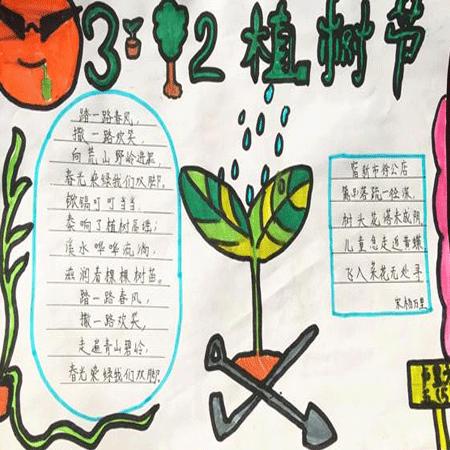 3·12植树节
踏一路春风,
撒一路欢笑,
向荒山野岭进军,
春光染绿我们双脚。
锹镐叮叮当当,
奏响了植树
洒水哗哗流淌,
滋润着棵棵树苗。
踏一路春风,
撒一路欢笑,
走遍青山碧岭,
春光染绿我们双脚。
宿新市徐公店
篱落疏疏一径深,
树头花落未成阴。
儿童急走追黄蝶,
飞入菜花无处寻
宋 杨万里